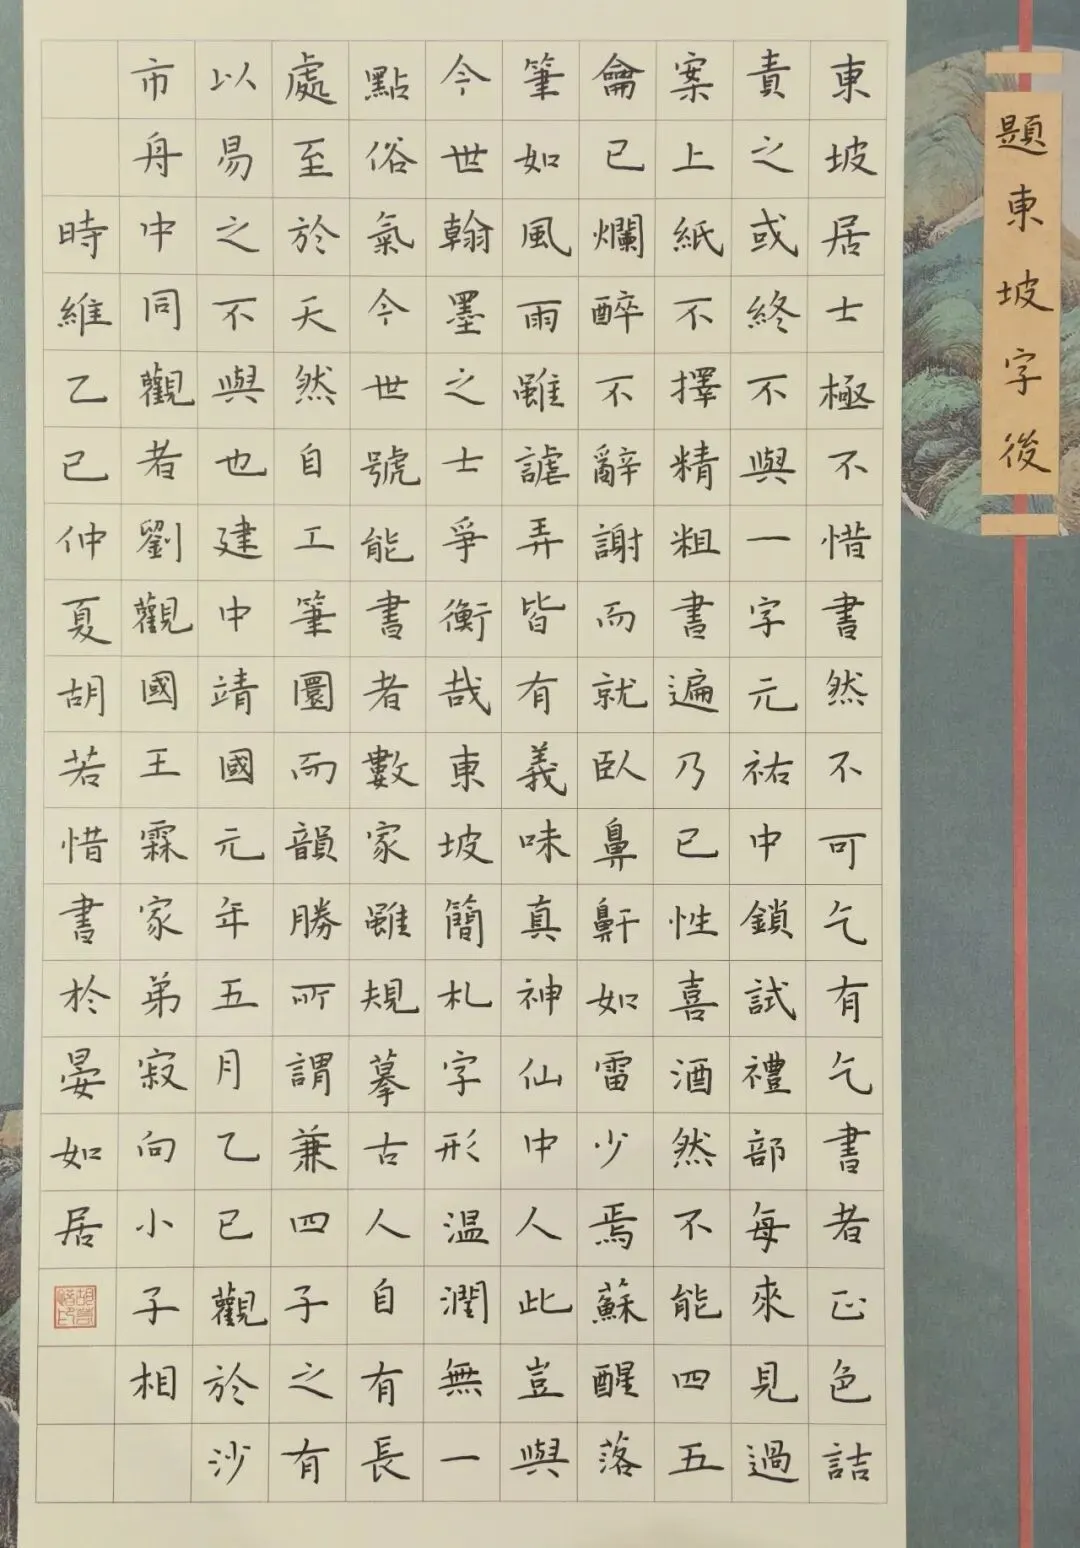 題東坡字後
東坡居士極不惜書然不可乞有乞書者正色詰
責之或終不與一字元祐中鎖試禮部每來見過
案上紙不擇精粗書遍乃已性喜酒然不能四五
龠已爛醉不辭謝而就臥鼻鼾如雷少焉蘇醒落
筆如風雨雖謔弄皆有義味真神仙中人此豈與
今世翰墨之士爭衡哉東坡簡札字形温潤無一
點俗氣今世號能書者數家雖規摹古人自有長
處至於天然自工筆圜而韻勝所謂兼四子之有
以易之不與也建中靖國元年五月乙巳觀於沙
市舟中同觀者劉觀國王霖家弟寂向小子相
時維乙巳仲夏胡若惜書於晏如居
胡若惜印